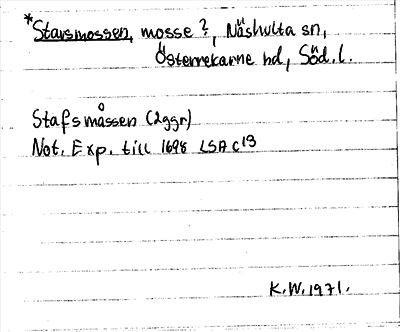 *Starsmossen, mosse ?, Näshulta sn,
Österrekarne hd, Söd.l.
Stafsmåssen (2ggr)
Not. Exp. till 1698 LSA C19
K.W. 1971.